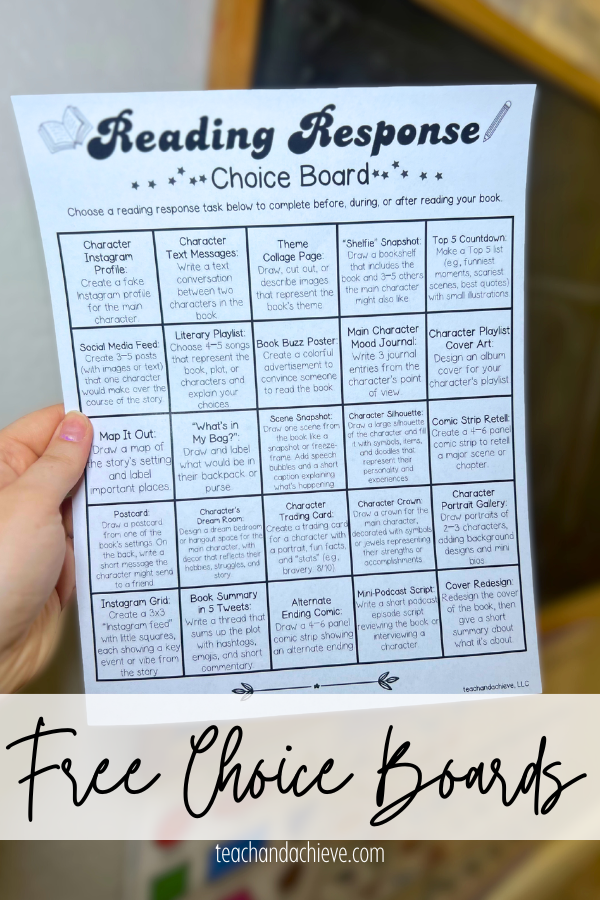 Reading Response
Choice Board
Choose a reading response task below to complete before, during, or after reading your book.
Character
Instagram
Profile:
Create a fake
Instagram profile
for the main
character
Character
Text Messages:
Write a text
conversation
between two
characters in the
book
Theme
Collage Page:
Draw, cut out, or
describe images
that represent the
book's theme
"Shelfie" Snapshot:
Draw a bookshelf
that includes the
book and 3-5 others
the main character
might also like
Top 5 Countdown:
Make a Top 5 list
(e.g., funniest
moments, scariest
scenes, best quotes)
with small illustrations
Social Media Feed:
Create 3-5 posts
(with images or text)
that one character
would make over the
course of the story.
Literary Playlist:
Choose 4-5 songs
that represent the
book, plot, or
characters and
explain your
choices
Book Buzz Poster:
Create a colorful
advertisement to
convince someone
to read the book
Main Character
Mood Journal:
Write 3 journal
entries from the
character's point
of view
Character Playlist
Cover Art:
Design an album
cover for your
character's playlist
Map It Out:
Draw a map of
the story's setting
and label
important places
"What's in
My Bag?":
Draw and label
what would be in
their backpack or
purse
Scene Snapshot:
Draw one scene from
the book like a
snapshot or freeze-
frame. Add speech
bubbles and a short
caption explaining
what's happening
Character Silhouette:
Draw a large silhouette
of the character and fill
it with symbols, items,
and doodles that
represent their
personality and
experiences
Comic Strip Retell:
Create a 4-6 panel
comic strip to retell
a major scene or
chapter.
Postcard:
Draw a postcard
from one of the
book's settings. On
the back, write a
short message the
character might send
to a friend
Character's
Dream Room:
Design a dream bedroom
or hangout space for the
main character, with
decor that reflects their
hobbies, struggles, and
story
Character
Trading Card:
Create a trading card
for a character with
a portrait, fun facts,
and "stats" (e.g.,
bravery: 8/10)
Character Crown:
Draw a crown for the
main character,
decorated with symbols
or jewels representing
their strengths or
accomplishments.
Character
Portrait Gallery:
Draw portraits of
2-3 characters,
adding background
designs and mini
bios
Instagram Grid:
Create a 3x3
"Instagram feed"
with little squares,
each showing a key
event or vibe from
the story
Book Summary
in 5 Tweets:
Write a thread that
sums up the plot
with hashtags,
emojis, and short
commentary
Alternate
Ending Comic:
Draw a 4-6 panel
comic strip showing
an alternate ending
Mini-Podcast Script:
Write a short podcast
episode script
reviewing the book or
interviewing a
character
Cover Redesign:
Redesign the cover
of the book, then
give a short
summary about
what it's about.
teachandachieve, LLC
Free Choice Boards
teachandachieve.com